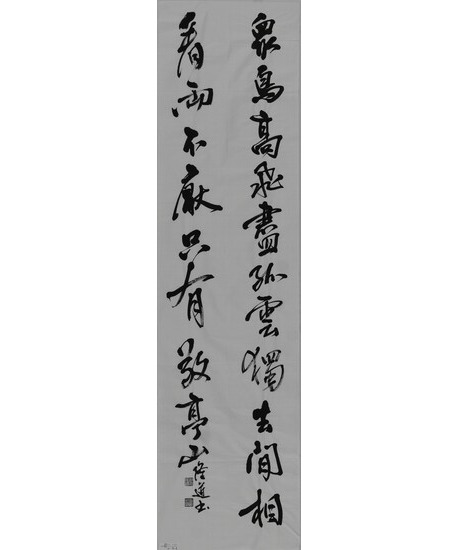 衆鳥高飛盡孤雲獨去閒相
看兩不厭只有敬亭山
道書